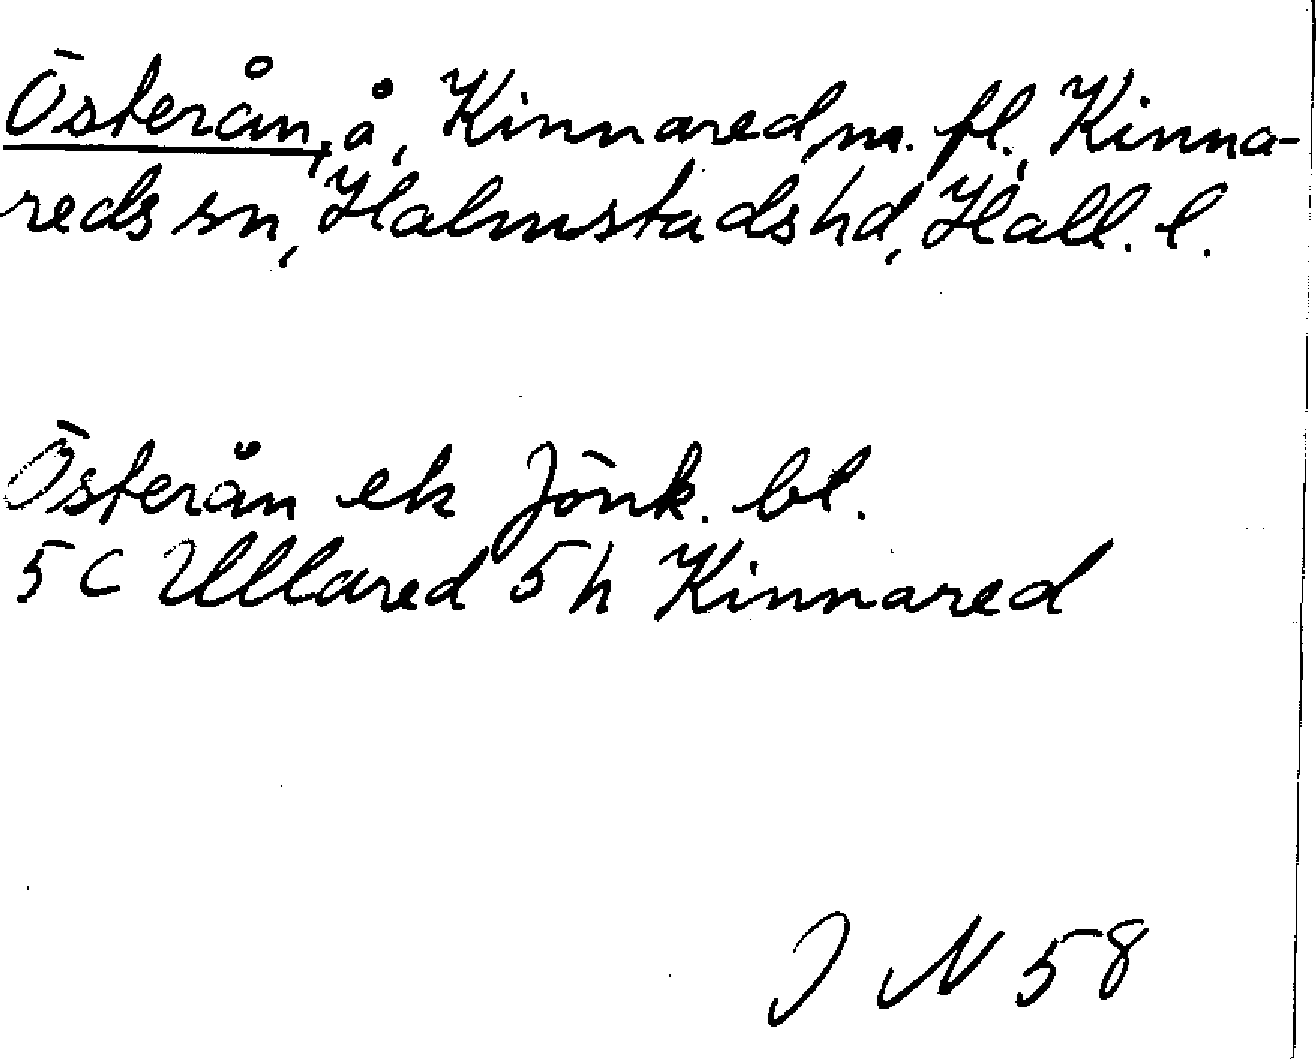 Österån, å, Kinnared m. fl., Kinna-
reds sn, Halmstads hd, Hall. l.
Österån ek Jönk. bl.
5 C Ullared 5 h Kinnared
J N 58